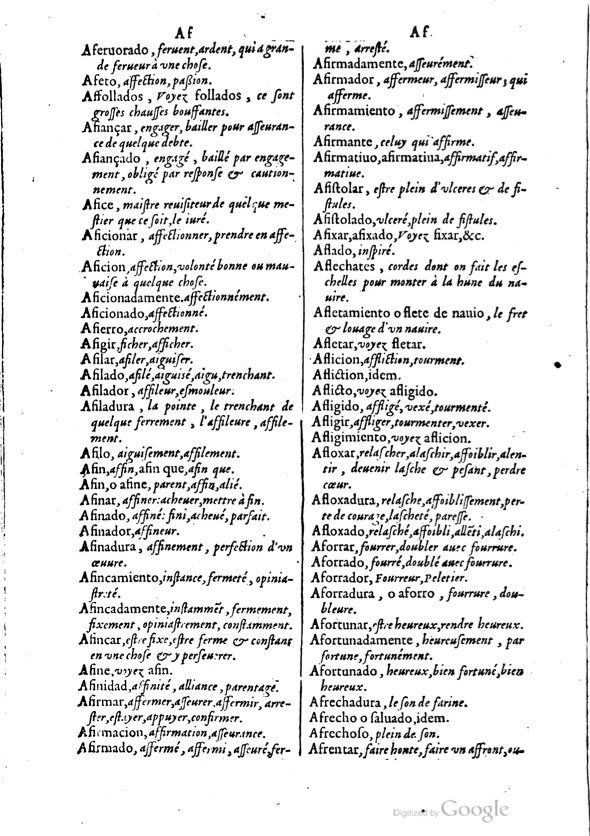 Af
Aferuorado, feruent, ardent, qui a gran-
de ferueur à vne chose.
Afeto, affection, passion.
Affollados, Voyez follados, ce sont
grosses chausses bouffantes.
Afiançar, engager, bailler pour asseuran-
ce de quelque debte.
Afiançado, engagé, baillé par engage-
ment, obligé par response & caution-
nement.
Afice, maistre reuisiteur de quelque me-
stier que ce soit, le iuré.
Aficionar, affectionner, prendre en affe-
ction.
Aficion, affection, volonté bonne ou mau-
uaise à quelque chose.
Aficionadamente. affectionnément.
Aficionado, affectionné.
Afierro, accrochement.
Afigir, ficher, afficher.
Afilar, afiler, aiguiser.
Afilado, afilé, aiguisé, aigu, trenchant.
Afilador, affileur, esmouleur.
Afiladura, la pointe, le trenchant de
quelque ferrement, l'affileure, affile-
ment.
Afilo, aiguisement, affilement.
Afin, affin, afin que, afin que.
Afin, o afine, parent, affin, alié.
Afinar, affiner: acheuer, mettre à fin.
Afinado, affiné: fini, acheué, parfait.
Afinador, affineur.
Afinadura, affinement, perfection d'vn
œuure.
Afincamiento, instance, fermeté, opinia-
streté.
Afincadamente, instammēt, fermement,
fixement, opiniastrement, constamment.
Afincar, estre fixe, estre ferme & constant
en vne chose & y perseuerer.
Afine, voyez afin.
Afinidad, affinité, alliance, parentage.
Afirmar, affermer, asseurer, affermir, arre-
ster, estayer, appuyer, confirmer.
Afirmacion, affirmation, asseurance.
Afirmado, affermé, affermi, asseuré, fer-
Af.
me, arresté.
Afirmadamente, asseurément.
Afirmador, affermeur, affermisseur; qui
afferme.
Afirmamiento, affermissement, asseu-
rance.
Afirmante, celuy qui affirme.
Afirmatiuo, afirmatiua, affirmatif, affir-
matiue.
Afistolar, estre plein d'vlceres & de fi-
stules.
Afistolado, vlceré, plein de fistules.
Afixar, afixado, Voyez fixar, &c.
Aflado, inspiré.
Aflechates, cordes dont on fait les es-
chelles pour monter à la hune du na-
uire.
Afletamiento o flete de nauio, le fret
& louage d'vn nauire.
Afletar, voyez fletar.
Aflicion, affliction, tourment.
Afliction, idem.
Aflicto, voyez afligido.
Afligido, affligé, vexé, tourmenté.
Afligir, affliger, tourmenter, vexer.
Afligimiento, voyez aflicion.
Afloxar, relascher, alaschir, affoiblir, alen-
tir, deuenir lasche & pesant, perdre
cœur.
Afloxadura, relasche, affoiblissement, per-
te de courage, lascheté, paresse.
Afloxado, relasché, affoibli, allēti, alaschi.
Aforrar, fourrer, doubler auec fourrure.
Aforrado, fourré, doublé auec fourrure.
Aforrador, Fourreur, Peletier.
Aforradura, o aforro, fourrure, dou-
bleure.
Afortunar, estre heureux, rendre heureux.
Afortunadamente, heureusement, par
fortune, fortunément.
Afortunado, heureux, bien fortuné, bien
heureux.
Afrechadura, le son de farine.
Afrecho o saluado, idem.
Afrechoso, plein de son.
Afrentar, faire honte, faire vn affront, ou-
Digitized by Google